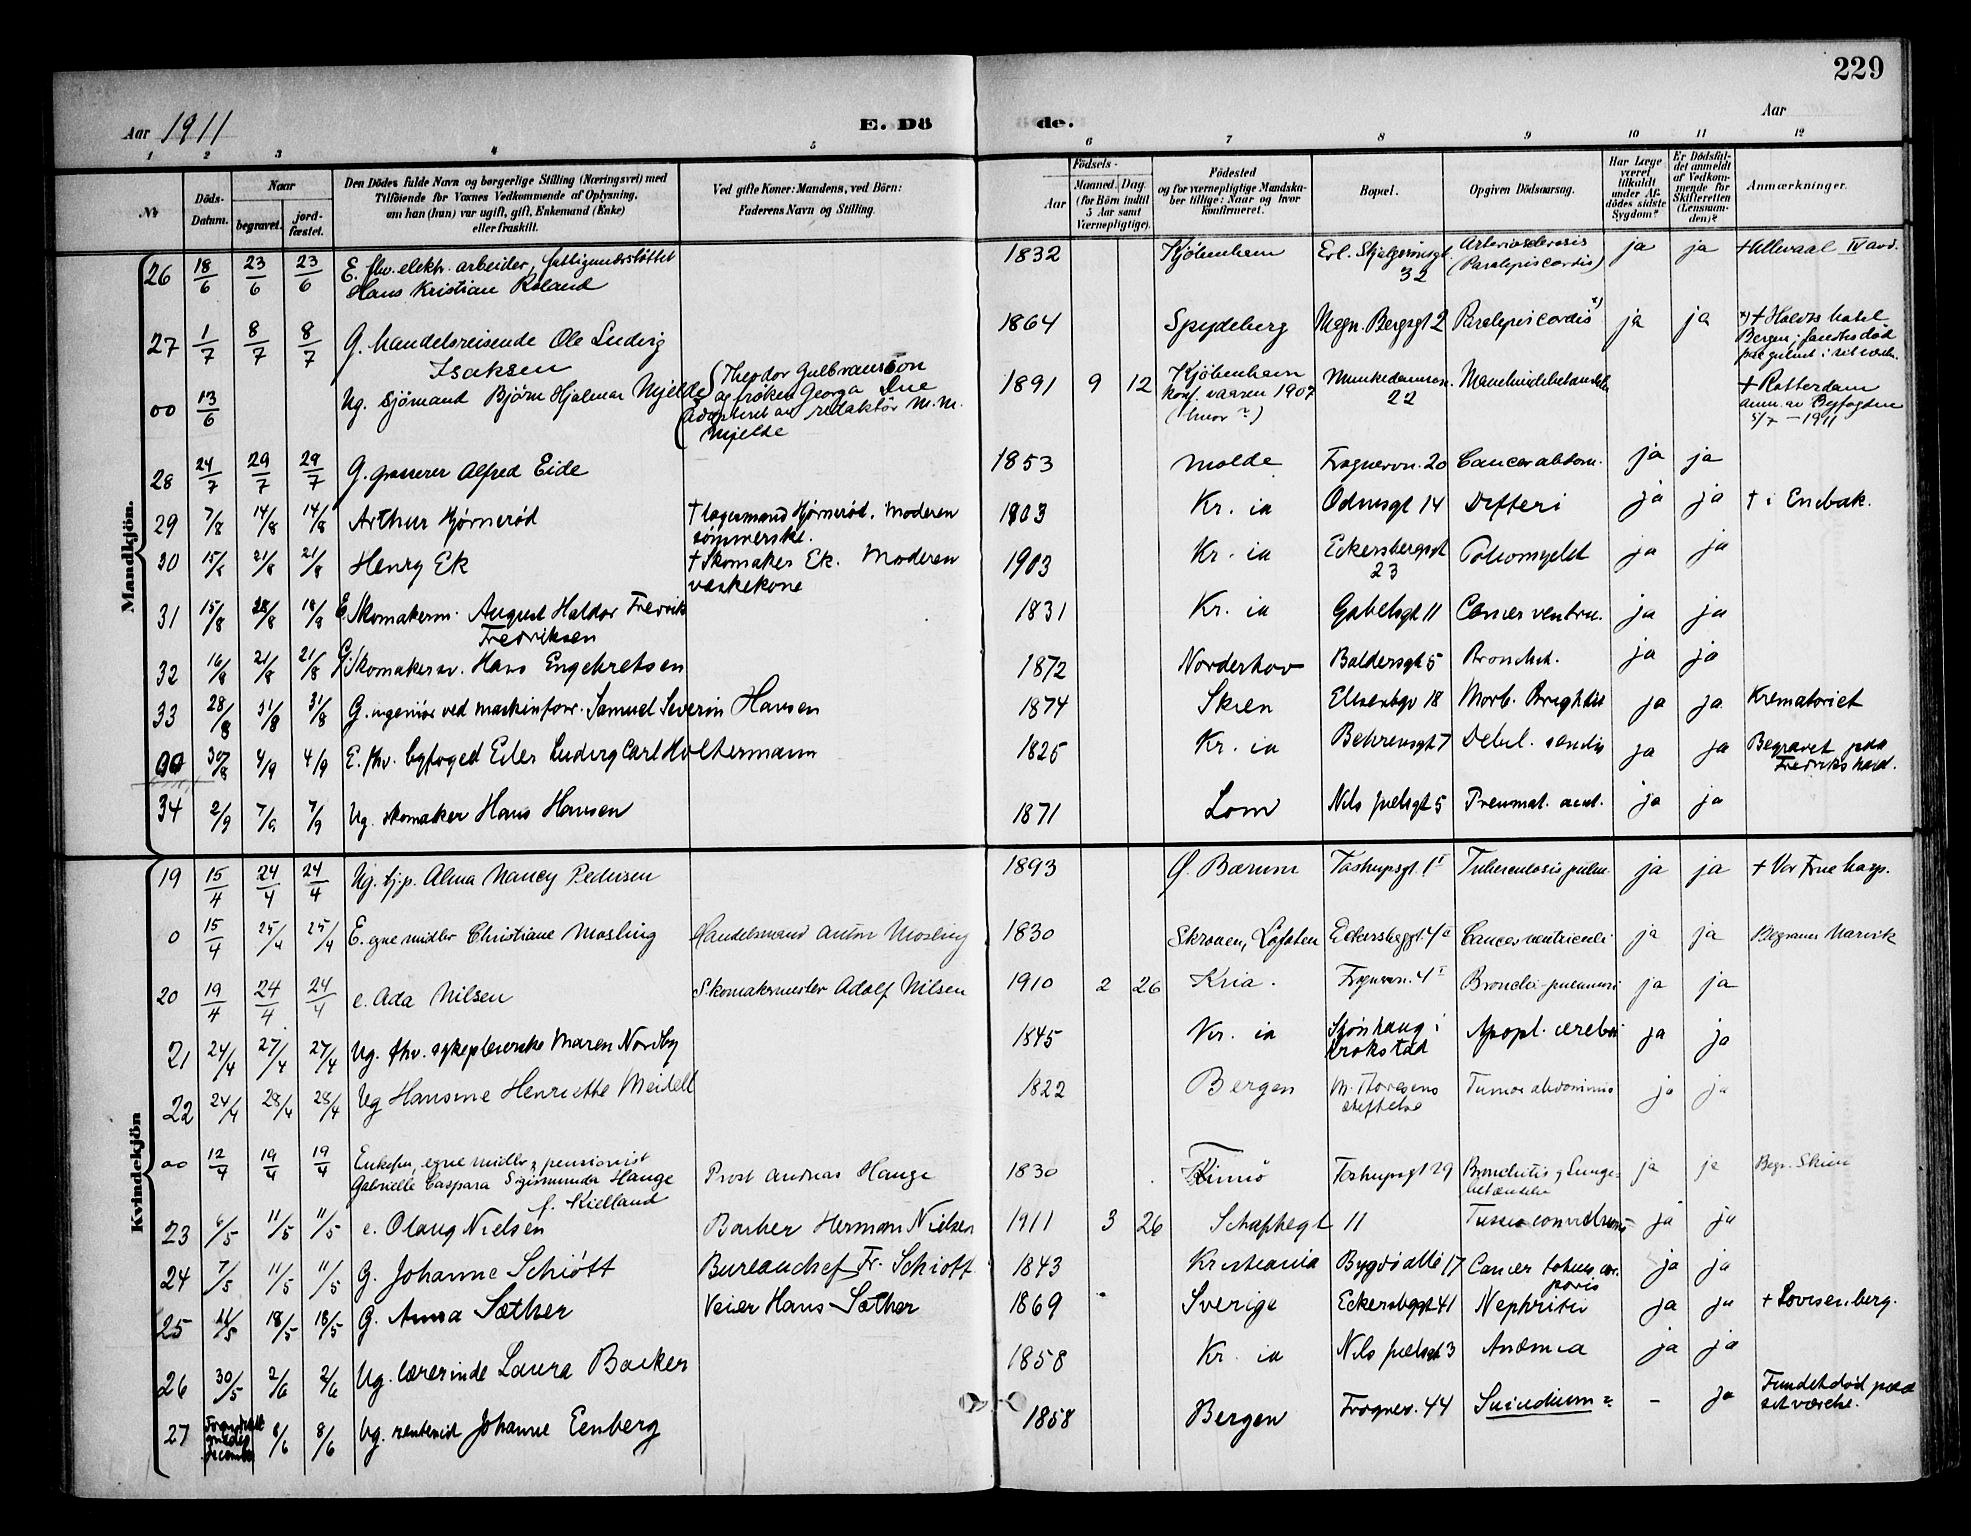 229
Aar 1911
E. Dö de.
Aar
1 2 3 4 5 6 7 8 9 10 11 12
No
Döds-Datum.
Naar
begravet.
jord-fæstet.
Den Dödes fulde Navn og borgerlige Stilling (Næringsvei) med
Tilföiende for Voxnes Vedkommende af Oplysning,
om han (hun) var ugift, gift, Enkemand (Enke)
eller fraskilt.
Ved gifte Koner: Mandens, ved Börn:
Faderens Navn og Stilling.
Födsels-
Aar
Maaned. Dag.
(for Börn indtil
5 Aar samt
Værnepligtige).
Födested
og for værnepligtige Mandska-
ber tillige: Naar og hvor
konfirmeret.
Bopæl.
Opgiven Dödsaarsag.
Har Læge
været
tilkaldt
under Af-
dödes sidste
Sygdom?
Er Dödsfal-
det anmeldt
af Vedkom-
mende for
Skifteretten
(Lensman-
den)?
Anmærkninger.
Mandkjön.
26 18/6 23/6 23/6 E. fhv. elektr. arbeider, fattigunderstøttet 1832 Kjöbenhavn Erl. Skjalgssönsgt Arteriosclerosis ja ja + Ullevaal IV avd.
Hans Kristian Roland 32 (Paralysis cordis)
27 1/7 8/7 8/7 G. handelsreisende Ole Ludvig 1864 Spydeberg Magn. Bergsgt 2 Paralysis cordis x) ja ja x) + Holdts hotel
Isaksen Bergen; fandtes död
paa gulvet i sit værelse.
00 13/6 Ug. Sjömand Björn Hjalmar Mjelde (Theodor Gulbransson 1891 9 12 Kjöbenhavn Munkedamsvn. + Rotterdam
og fröken Georga Due Konf. vaaren 1907 22 anm. av Byfogden
adopteret av redaktör M. M. (hvor?) 5/7 - 1911
Mjelde
28 24/7 29/7 29/7 G. grosserer Alfred Eide 1853 Molde Frognervn. 20 Cancer abdom. ja ja
29 7/8 14/8 14/8 Arthur Hjørnerød + lagermand Hjørnerød. Moderen 1903 Kr. ia Odinsgt 14 Difteri ja ja + i Enebak.
sømmerske.
30 15/8 21/8 21/8 Henry Ek + Skomaker Ek. Moderen 1903 Kr. ia Eckersbergsgt Poliomyelit ja ja
vaskekone 23
31 15/8 28/8 18/8 E. Skomakerm. August Haldor Fredrik 1831 Kr. ia Gabelsgt 11 Cancer ventric. ja ja
Fredriksen
32 16/8 21/8 21/8 G. Skomakersv. Hans Engebretsen 1872 Norderhov Baldersgt 5 Bronchit. ja ja
33 28/8 31/8 31/8 G. ingeniör ved maskinforr. Samuel Severin Hansen 1874 Skien Ellisenbgv 18 Morb. Brightii ja ja Krematoriet
00 30/8 4/9 4/9 E. fhv. byfoged Eiler Ludvig Carl Holtermann 1825 Kr. ia Behrensgt 7 Debil. senilis ja ja Begravet paa
Fredrikshald.
34 2/9 7/9 7/9 Ug. skomaker Hans Hansen 1871 Lom Nils Juelsgt 5 Preumat. acut. ja ja
Kvindekjön
19 15/4 24/4 24/4 Ug. tj.p. Alma Nancy Pedersen 1893 Ø. Bærum Tostrupsgt. 1 I Tuberculosis pulm. ja ja + Vor Frue hosp.
0 15/4 25/4 25/4 E. egne midler Christiane Mosling Handelsmand Anton Mosling 1830 Skroven, Lofoten Eckersbergsgt 4 a Cancer ventriculi ja ja Begraves Narvik
20 19/4 24/4 24/4 e. Ada Nilsen Skomakermester Adolf Nilsen 1910 2 26 Kria. Frognervn. 4 I Broncho-pneumoni ja ja
21 24/4 27/4 27/4 Ug. fhv. sykepleierske Maren Nordby 1845 Kr. ia Sjönhaug i Apopl. cerebri ja ja
Krokstad
22 24/4 28/4 28/4 Ug Hansine Henriette Meidell 1822 Bergen M. Thoresens Tumor abdominis ja ja
stiftelse
00 12/4 19/4 19/4 Enkefru, egne midler, pensionist 1830 Finnö Tostrupsgt 29 Bronchitis, Lunge- ja ja Begr. Skien
Gabrielle Caspara Sigismunda Hauge Prost Andreas Hauge betændelse
f. Kielland
23 6/5 11/5 11/5 e. Olaug Nielsen Barber Herman Nielsen 1911 3 26 Schaftesgt 11 Tussis convulsiva ja ja
24 7/5 11/5 11/5 G. Johanne Schiött Bureauchef Fr. Schiött 1843 Kristiania Bygdö allé 17 Cancer totius cor- ja ja
poris
25 14/5 18/5 18/5 G. Anna Sæther Veier Hans Sæther 1869 Sverige Eckersbgsgt 41 Nephritis ja ja + Lovisenberg.
26 30/5 2/6 2/6 Ug. lærerinde Laura Backer 1858 Kr. ia Nils Juelsgt 3 Anæmia ja ja
27 8/6 8/6 Ug. rentenist Johanne Eenberg 1858 Bergen Frognerv. 44 Suicidium? - ja Fundet død paa
sit værelse.